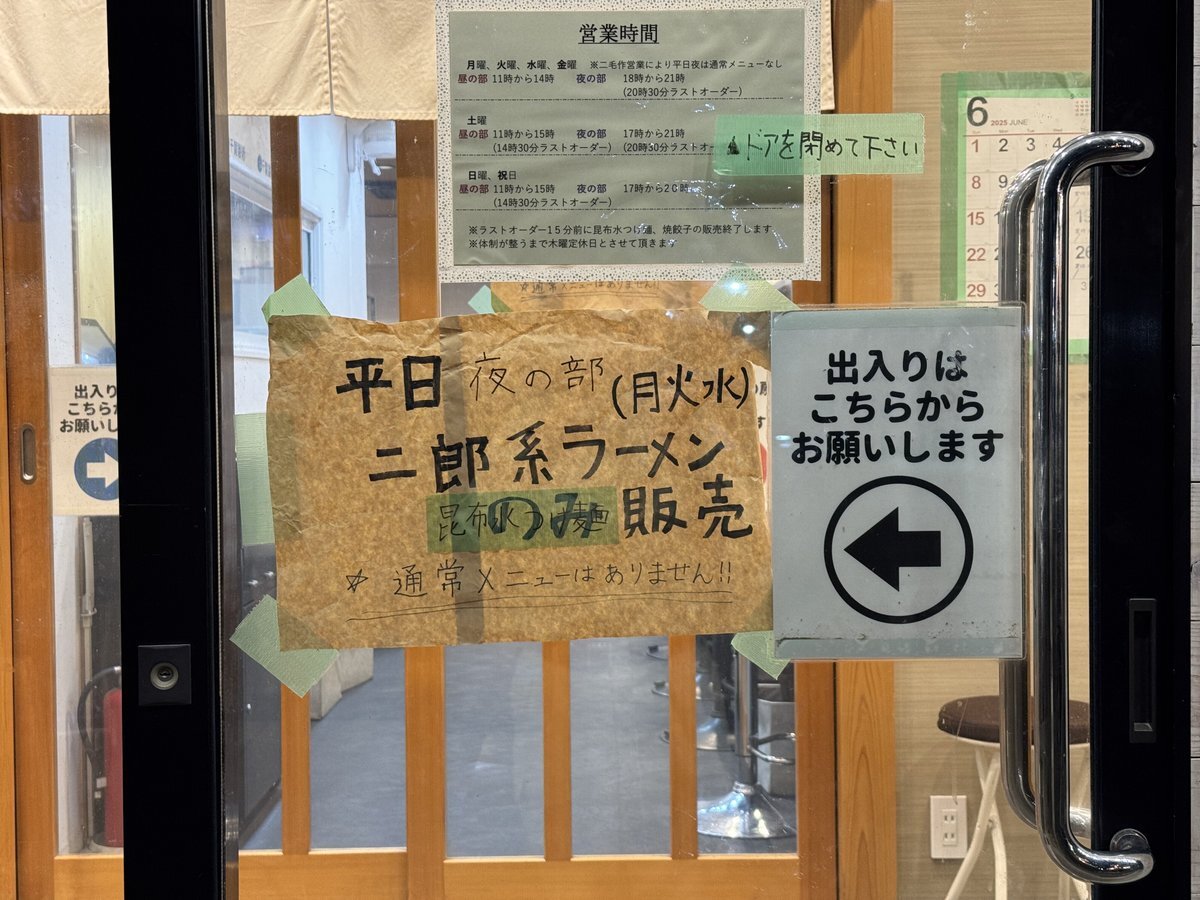 営業時間
月曜、火曜、水曜、金曜 ※二毛作営業により平日夜は通常メニューなし
昼の部 11時から14時 夜の部 18時から21時
(20時30分ラストオーダー)
土曜
昼の部 11時から15時 夜の部 17時から21時
(14時30分ラストオーダー) (20時30分ラストオー
日曜、祝日
昼の部 11時から15時 夜の部 17時から20時
(14時30分ラストオーダー)
※ラストオーダー15分前に昆布水つけ麺、焼餃子の販売終了します
※体制が整うまで木曜定休日とさせて頂きます
▲ドアを閉めて下さい
6 2025 JUNE
1 2 3 4
8 9 10 11
15
22
29
☆通常メニューはありません!!
平日 夜の部 (月火水)
二郎系ラーメン
昆布水つけ麺 のみ 販売
☆ 通常メニューはありません!!
出入りは
こちらから
お願いします
出入り
こちらか
お願いし